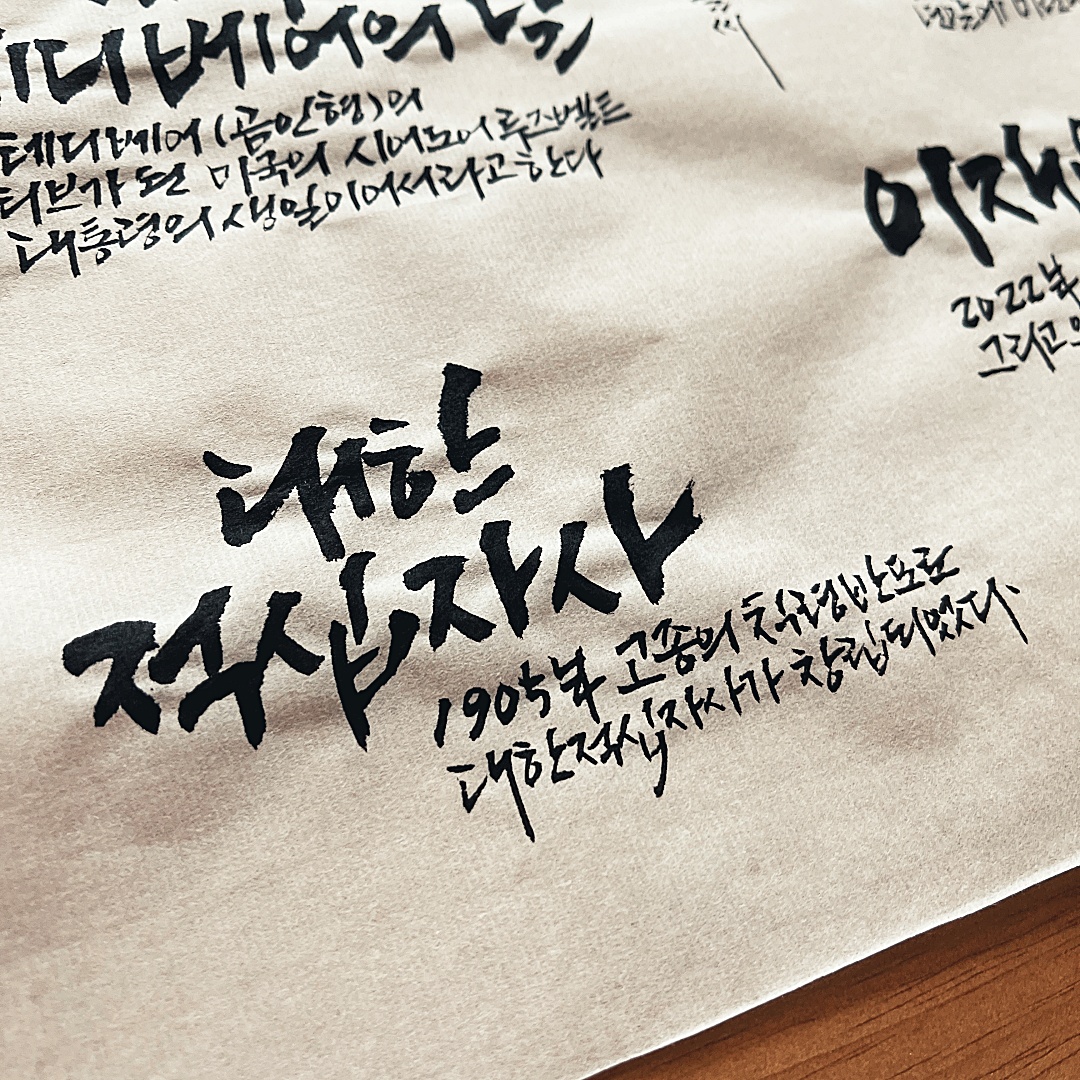 테디베어의 날
테디베어(곰인형)의
티브가 된 미국의 시어도어 루즈벨트
대통령의 생일이어서라고 한다
이재
2022년
그리고
대한
적십자사
1905년 고종의 칙령 반포로
대한적십자사가 창립되었다.